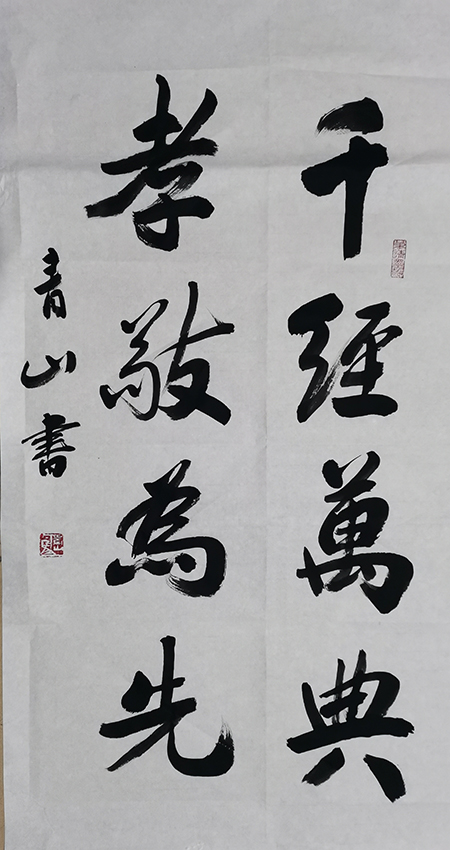 千經萬典
孝敬為先
青山書